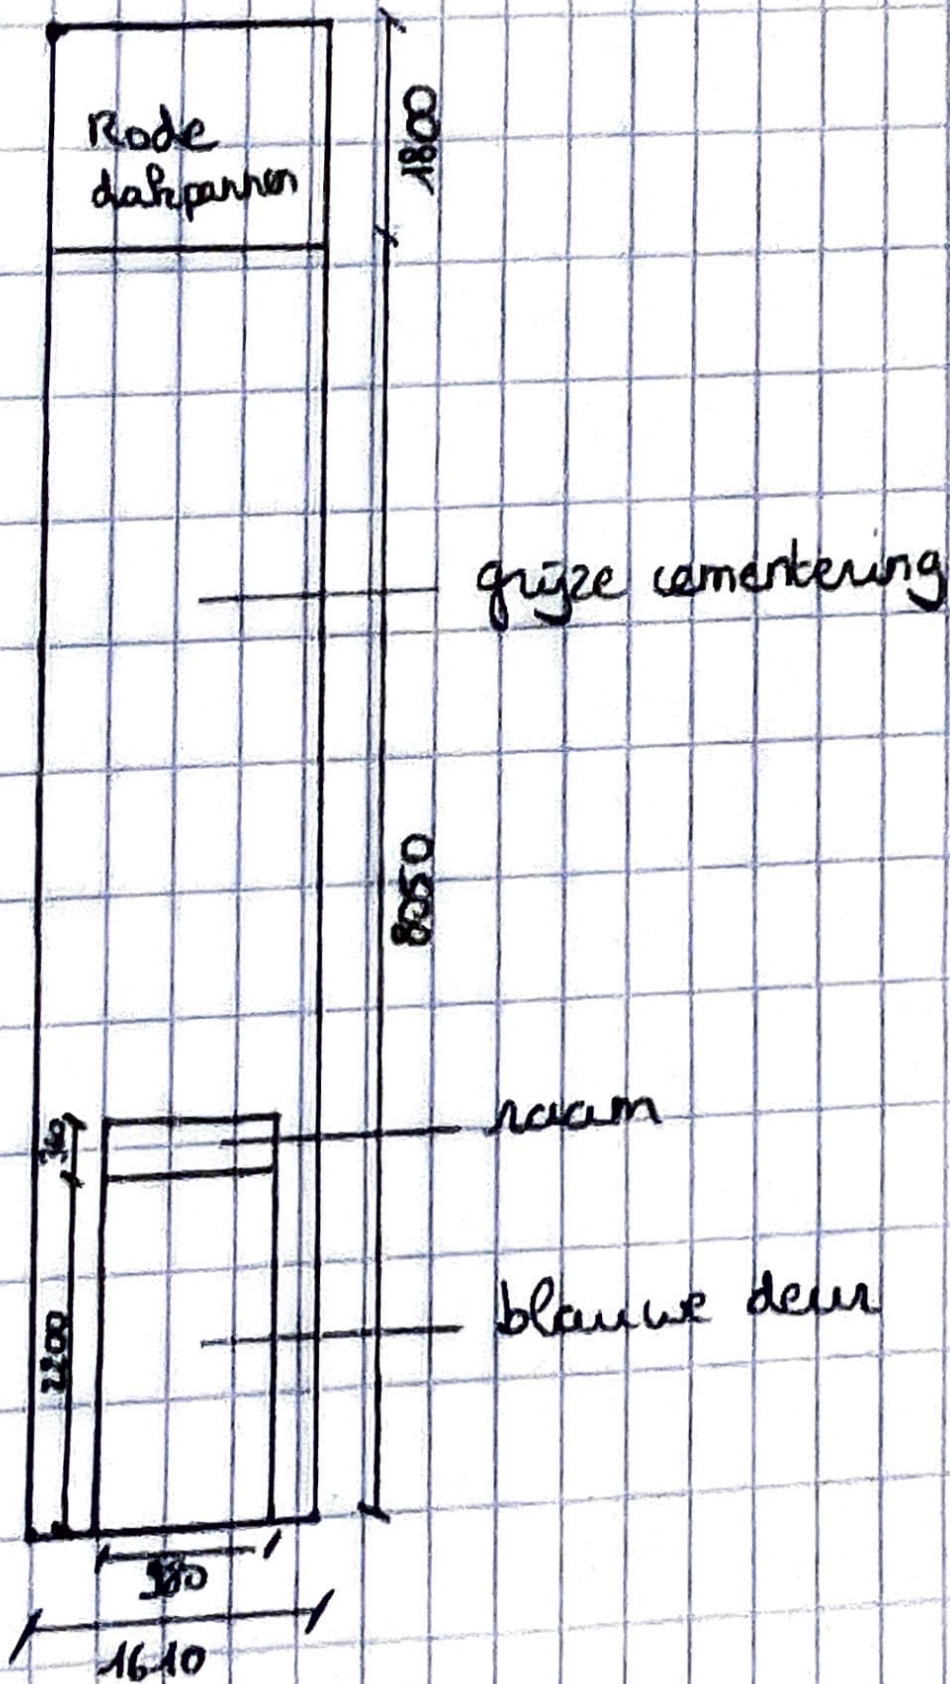 Rode
dakpannen
1800
grijze cementering
8050
raam
blauwe deur
2200
1610